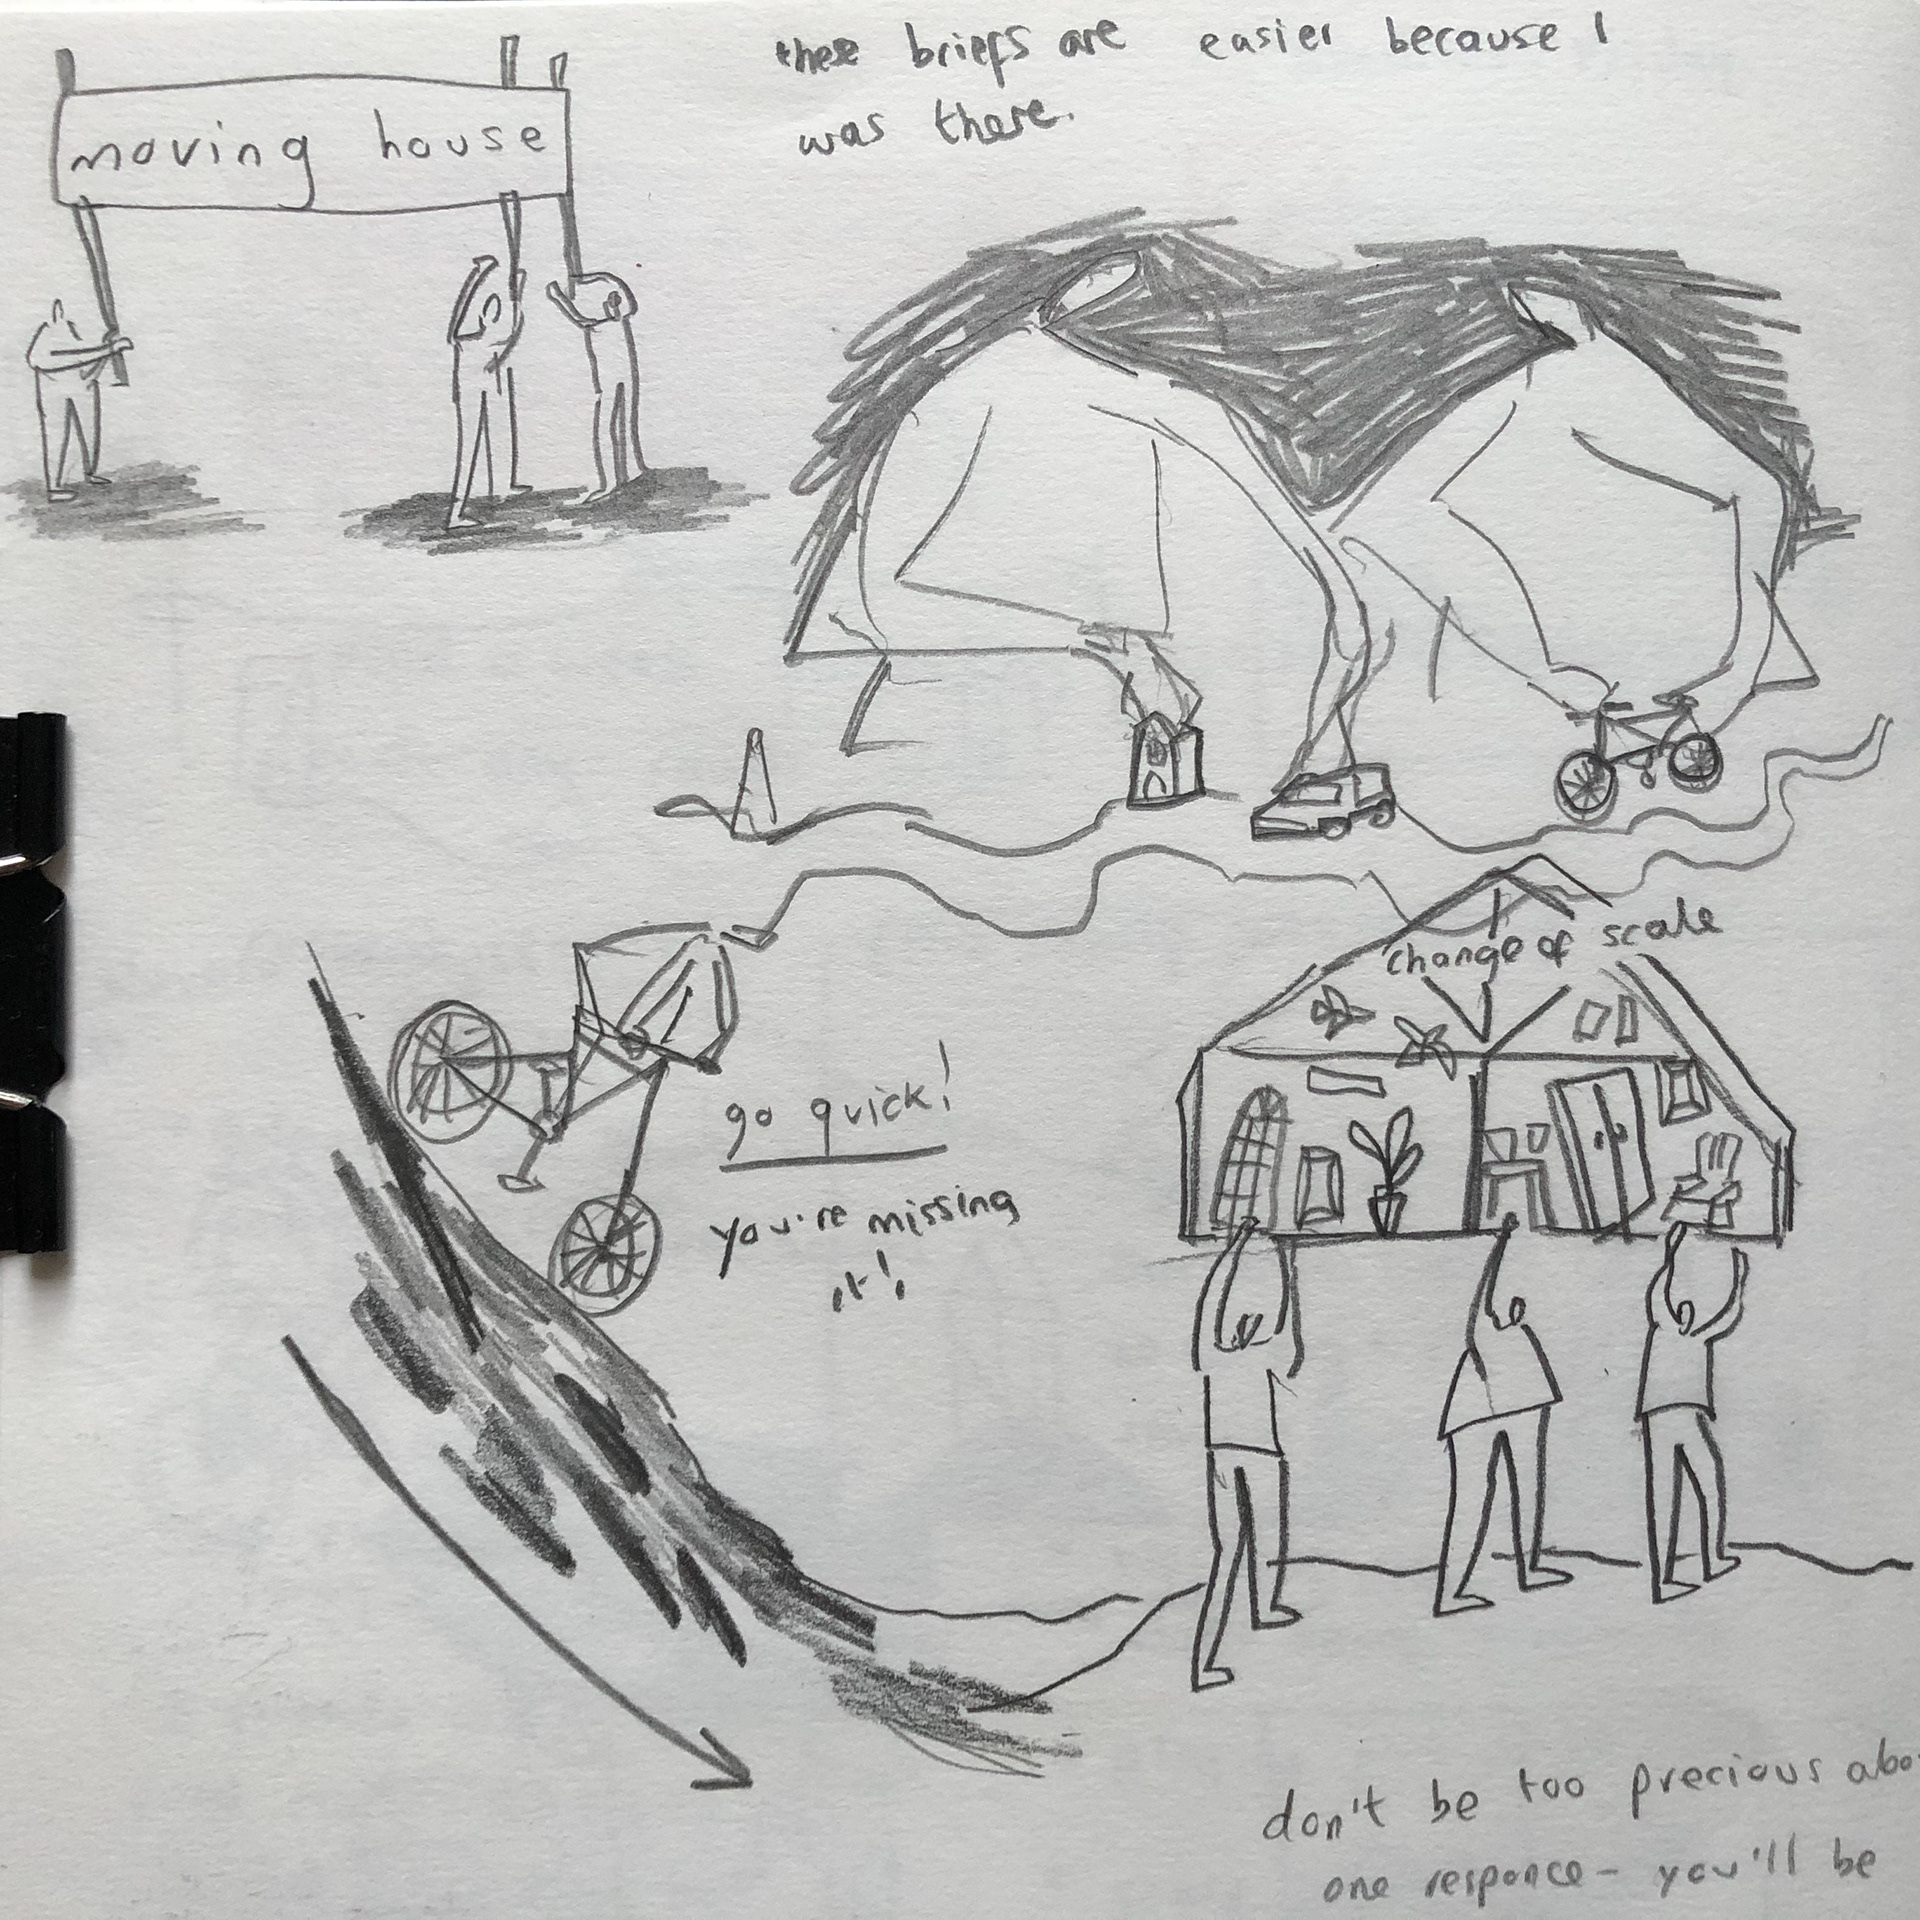 these briefs are easier because I
was there.
moving house
change of scale
go quick!
you're missing
it!
don't be too precious abo
one responce - you'll be